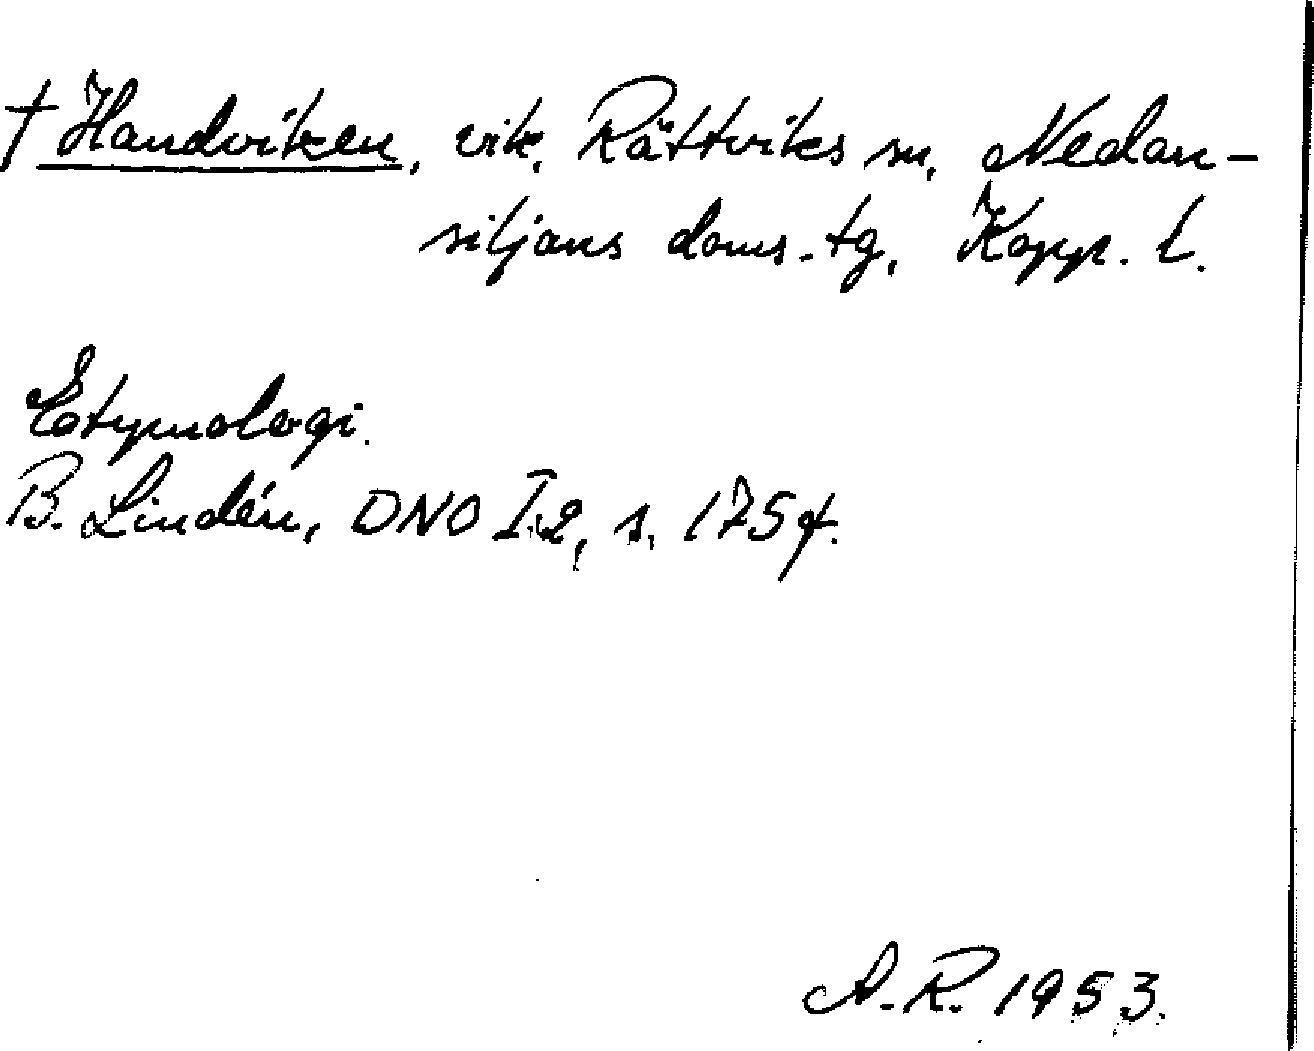 † Handviken, vik, Rättviks sn, Nedan-
siljans doms.tg, Kopp. l.
Etymologi.
B. Lindén, DNO I:2, s. 175 f.
A.R. 1953.